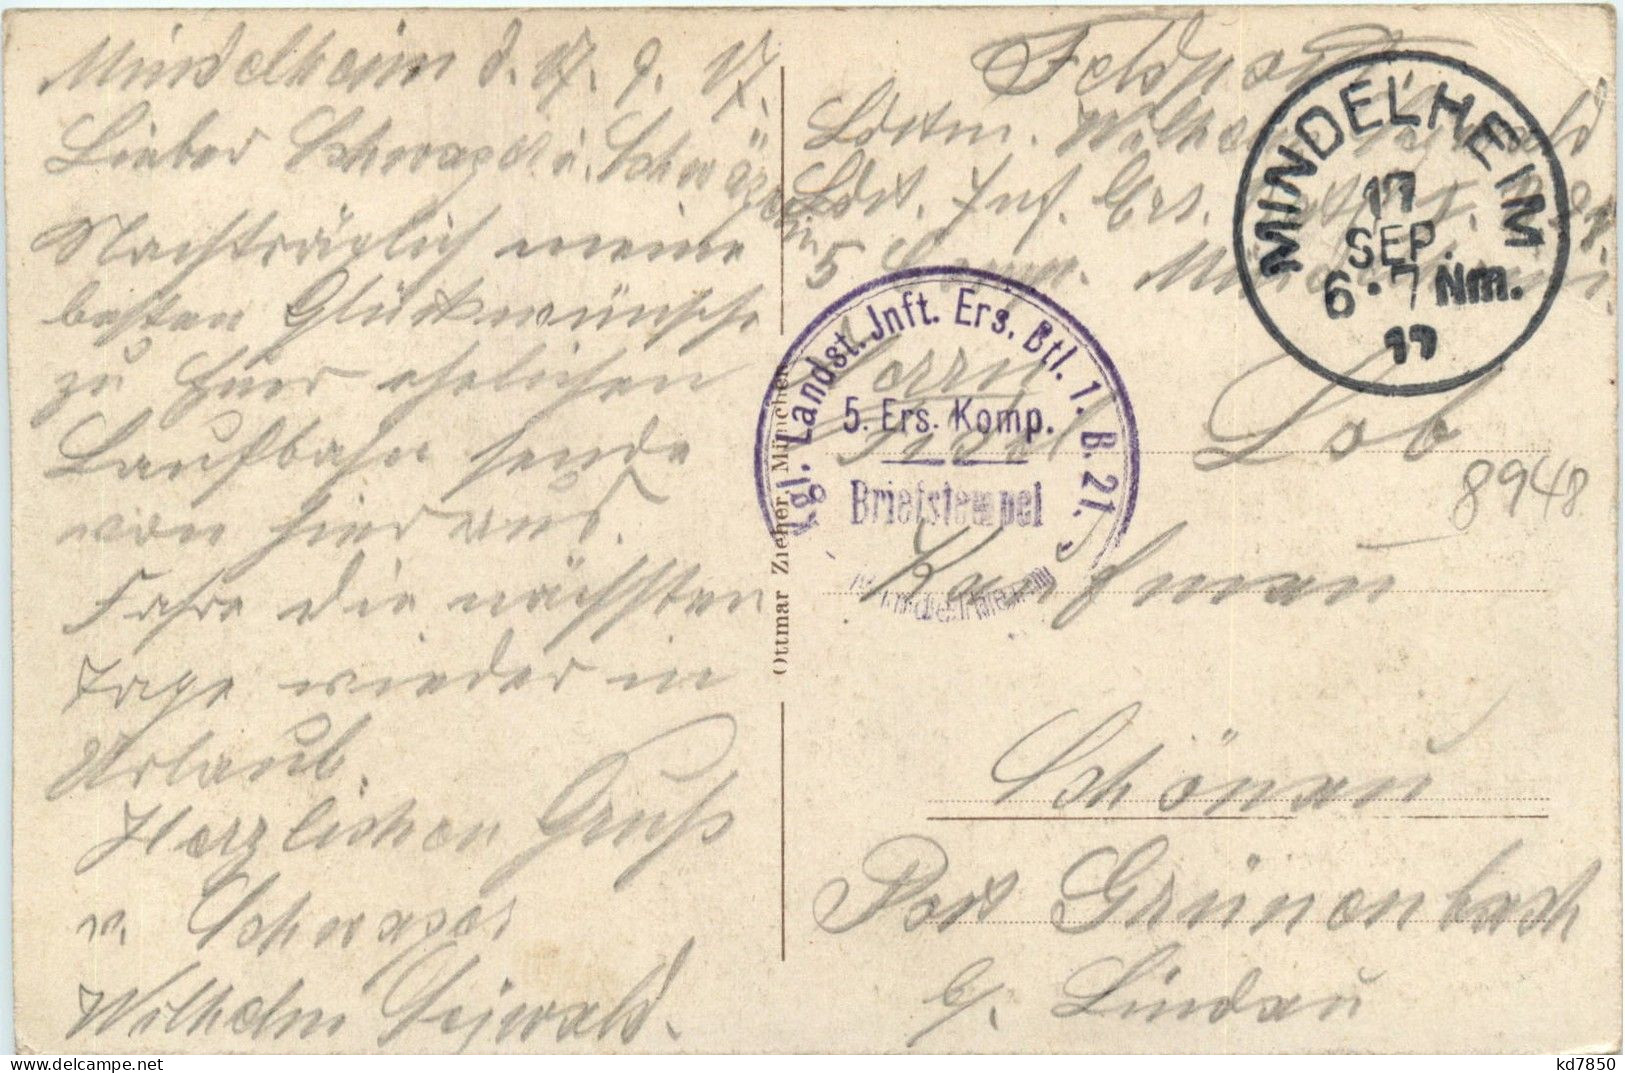 Mindelheim d. 17. 9. 17.
Lieber Schwager u. Schwägerin
Nachträglich meine
besten Glückwünsche
zu Euer ehelichen
Laufbahn sende
von hier aus.
Fahre die nächsten
Tage wieder in
Urlaub.
Herzlichen Gruß
v. Schwager
Wilhelm
Ottmar Zieher, München
Feldpost
Ldstm. Wilhelm
Ldst. Inf. Ers.
5 Komp. Mindelheim
MINDELHEIM
17
SEP.
6-7 Nm.
17
Kgl. Landst. Jnft. Ers. Btl. 1. B. 21.
5. Ers. Komp.
Briefstempel
Herrn
Fidel Lob
8948
Kaufman
Schönau
Post Grünenbach
b/. Lindau
kd7850